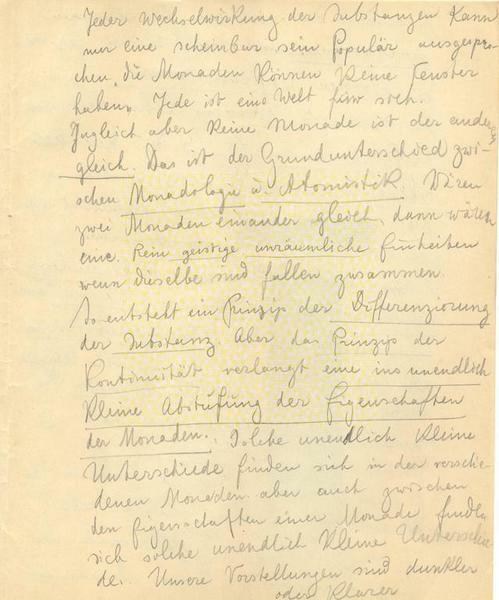 Jeder Wechselwirkung der Substanzen kann
nur eine scheinbar sein Populär ausgespro-
chen, die Monaden können keine Fenster
haben. Jede ist eine Welt fürw sich.
Zugleich aber keine Monade ist der andern
gleich. Das ist der Grundunterschied zwi-
schen Monadologie u. Atomistik. Wären
zwei Monaden einander gleich, dann wären
eine. Rein geistige unräumliche Einheiten
wenn dieselbe sind fallen zusammen.
So entsteht ein Prinzip der Differenziorung
der Substanz. Aber das Prinzip der
Kontinuität verlangt eine ins unendlich
kleine Abstufung der Eigenschaften
der Monaden. Solche unendlich kleine
Unterschiede finden sich in der verschie-
denen Monaden aber auch zwischen
den Eigenschaften einer Monade finden
sich solche unendlich kleine Unterschie-
de. Unsere Vorstellungen sind dunkler
oder klarer